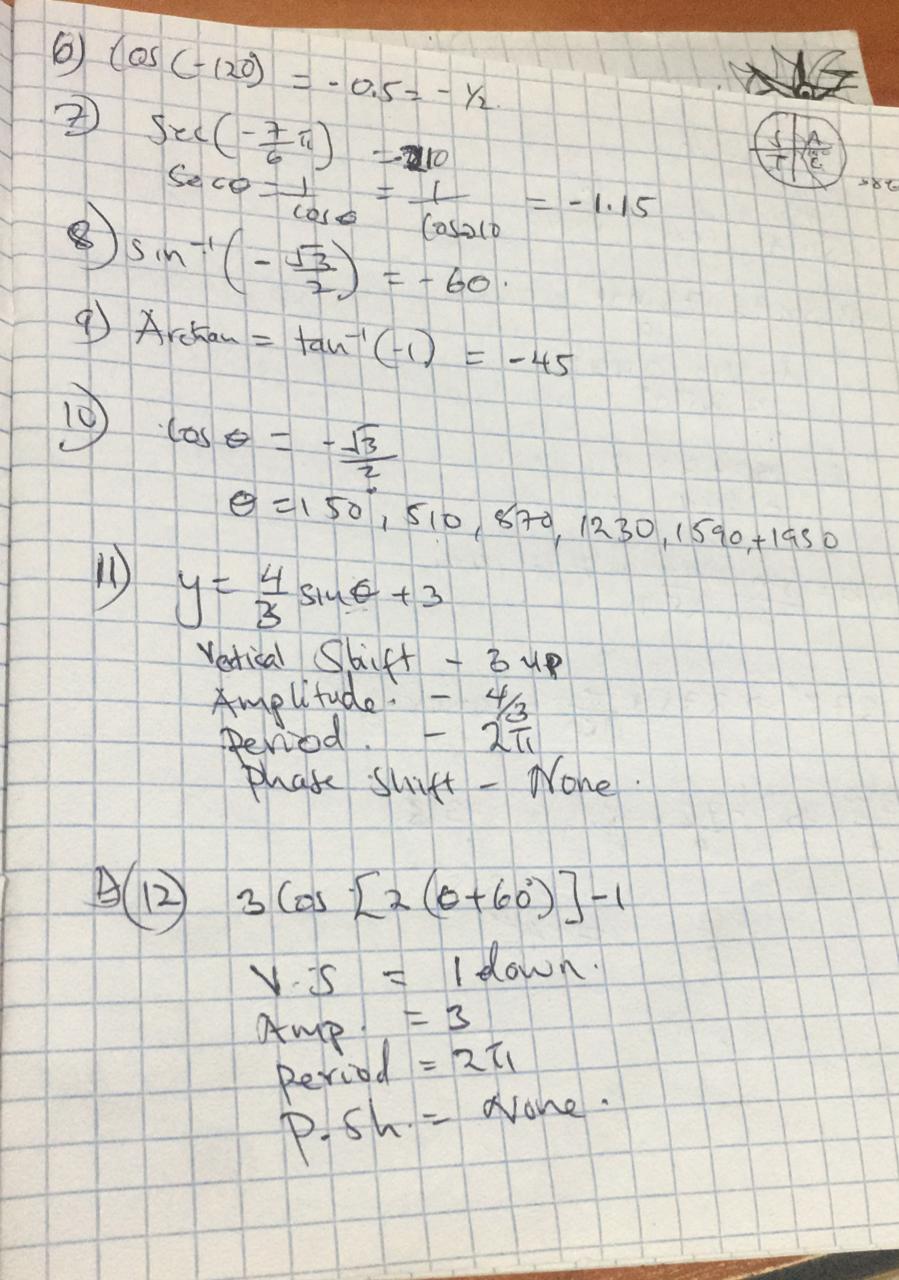 6) Cos (-120) = -0.5 = -1/2.
7) Sec(-7/6 π) = -210
Secθ = 1/cosθ = 1/Cos210 = -1.15
8) sin⁻¹(-√3/2) = -60.
9) Arctan = tan⁻¹(-1) = -45
10) Cos θ = -√3/2
θ = 150°, 510, 870, 1230, 1590, +1950
11) y = 4/3 sinθ + 3
Vertical Shift - 3 up
Amplitude. - 4/3
Period. - 2π
Phase Shift - None.
(12) 3 Cos [2(θ+60°)]-1
V.S = 1 down.
Amp. = 3
Period = 2π
P.Sh. = None.
S A
T C